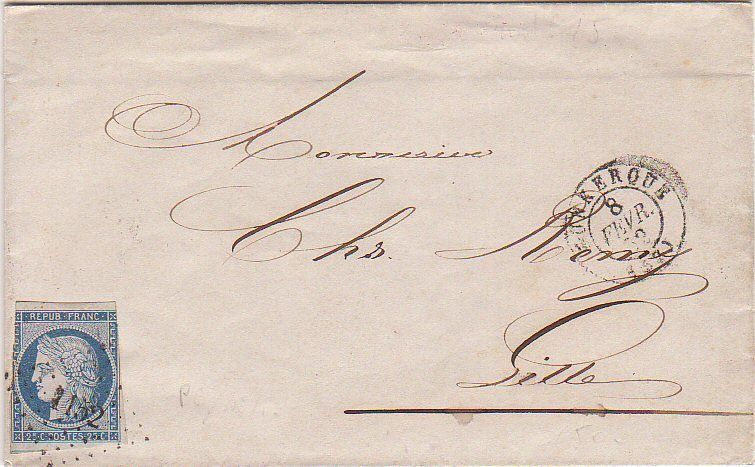 Monsieur
Chs. Remy
Lille
DUNKERQUE
8
FEVR.
REPUB. FRANC.
25 C. POSTES 25 C.